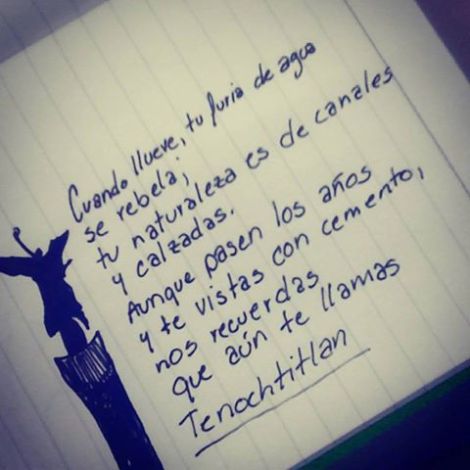 Cuando llueve, tu furia de agua
se rebela;
tu naturaleza es de canales
y calzadas.
Aunque pasen los años
y te vistas con cemento,
nos recuerdas
que aún te llamas
Tenochtitlan